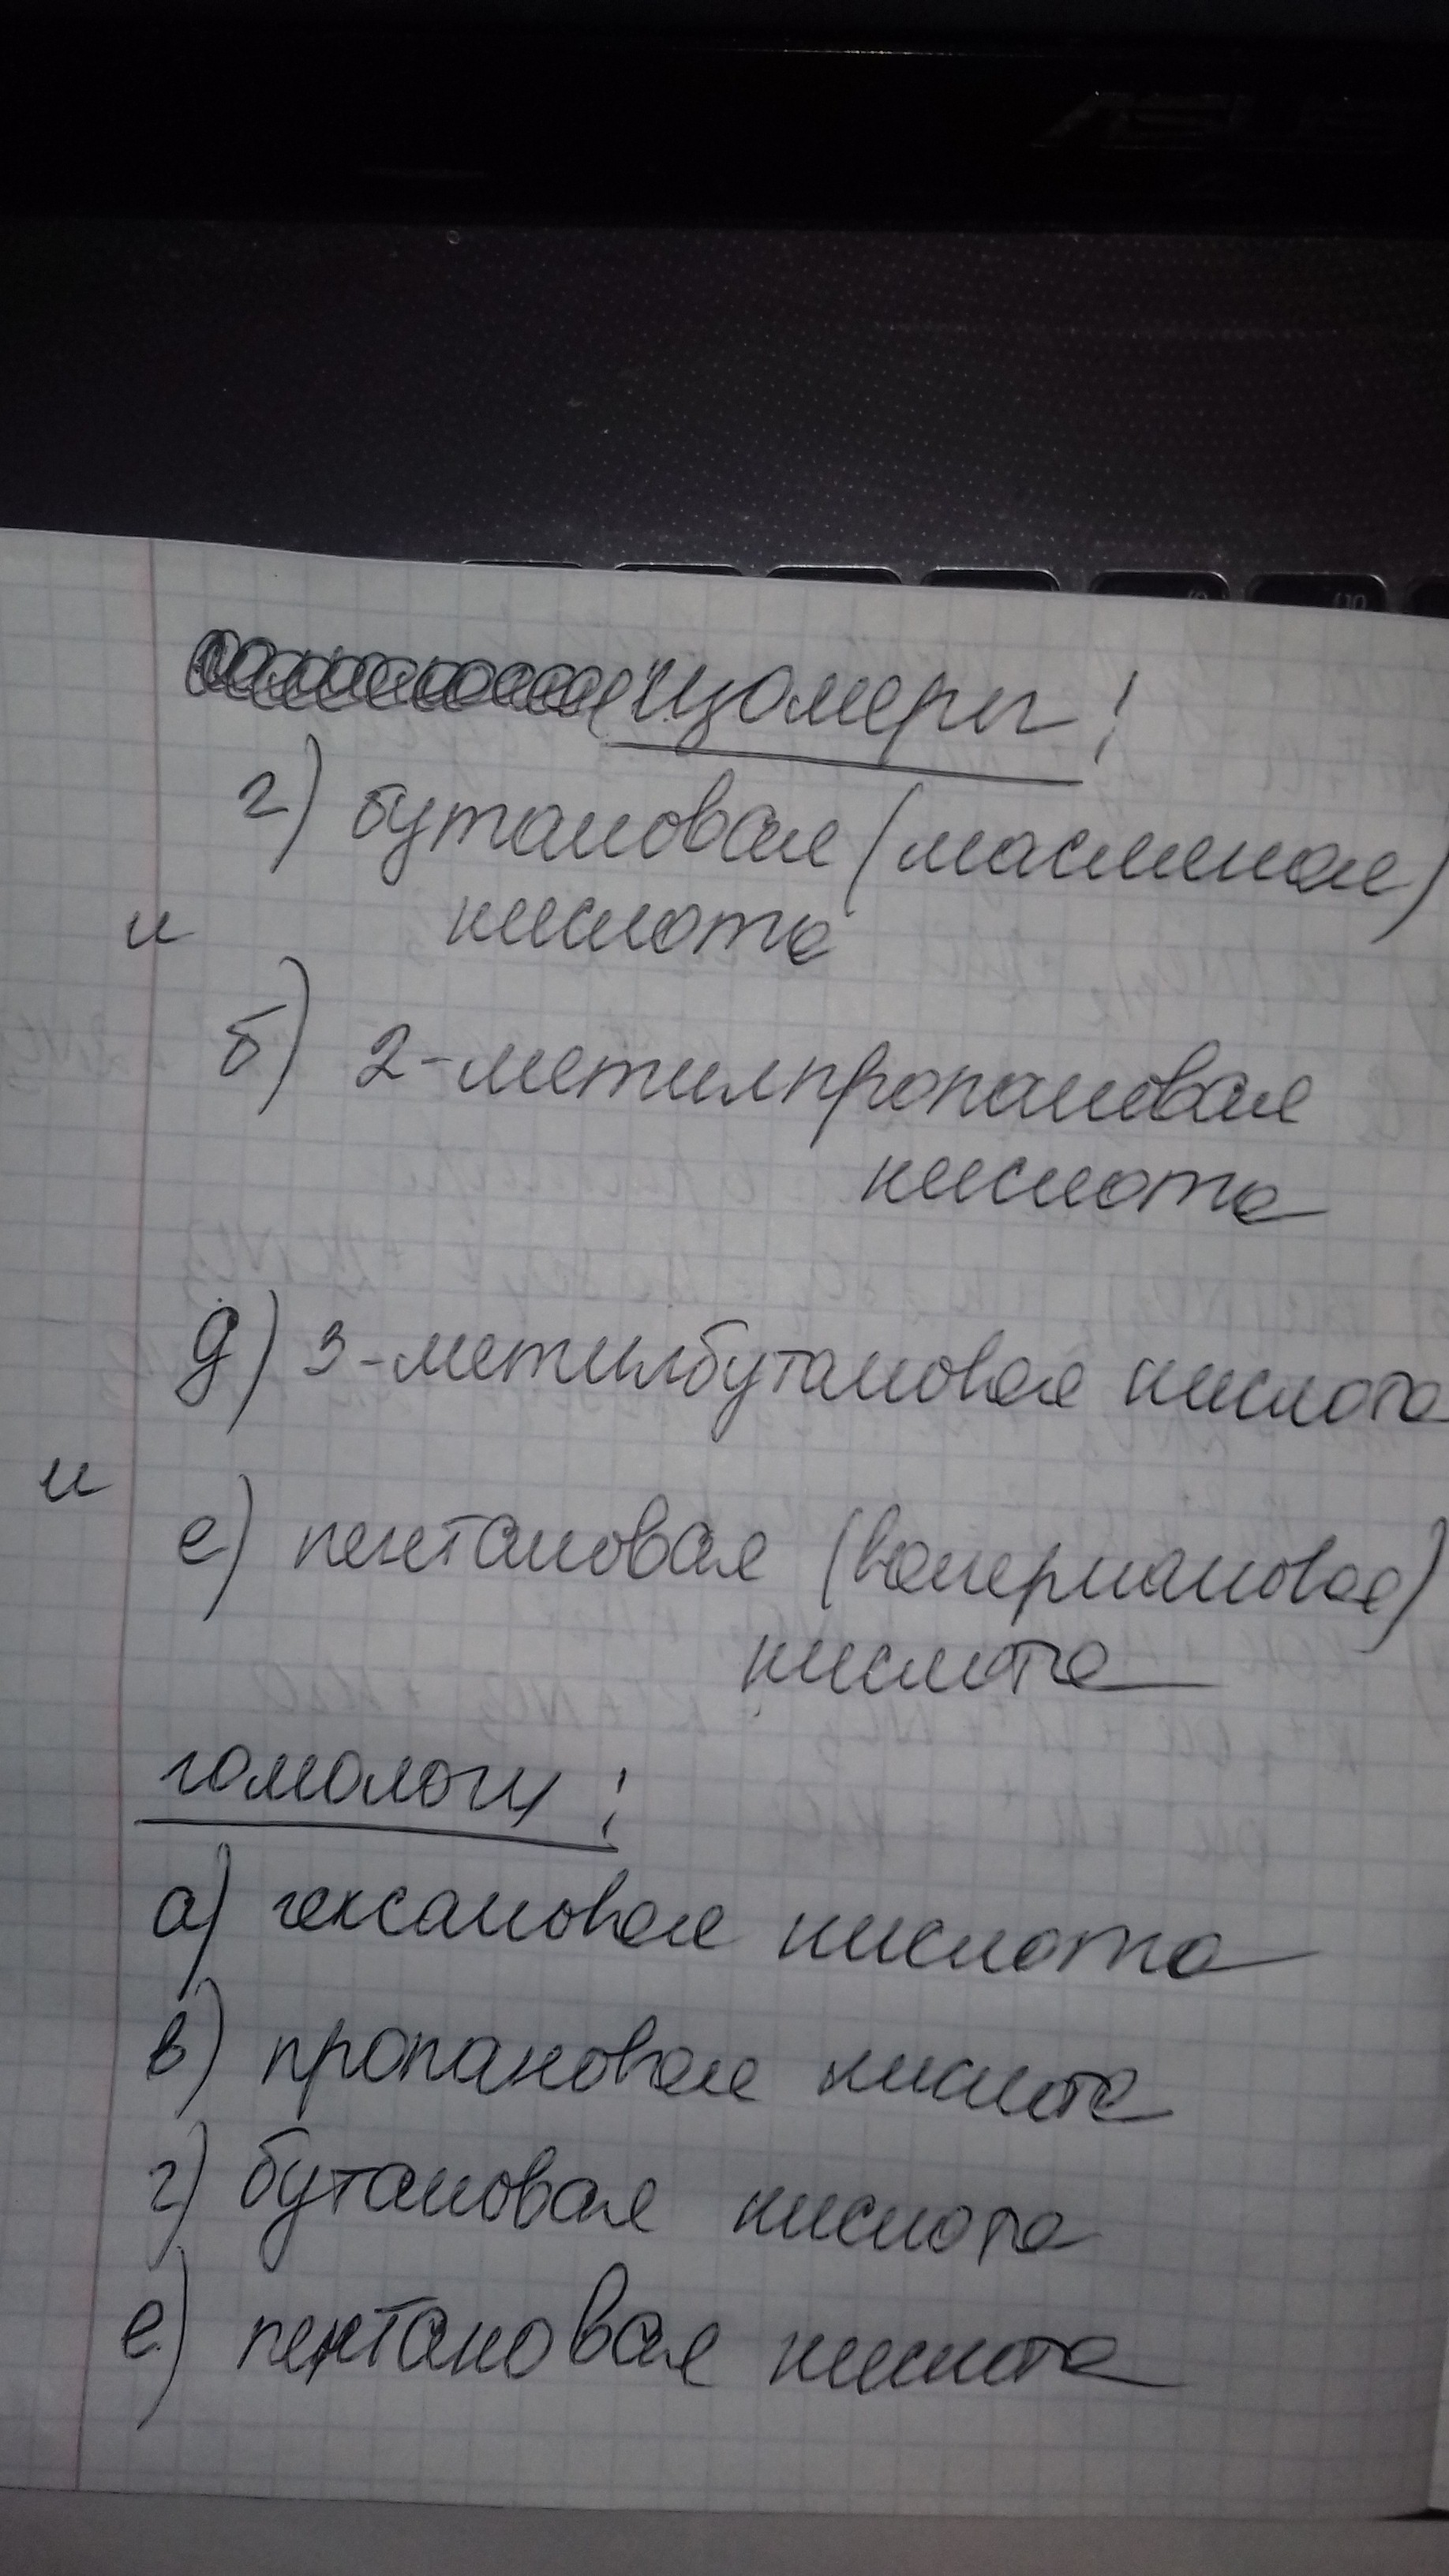 ASUS
изомеры:
г) бутановая (масляная)
кислота
и
б) 2-метилпропановая
кислота
д) 3-метилбутановая кислота
и
е) пентановая (валериановая)
кислота
гомологи:
а) гексановая кислота
в) пропановая кислота
г) бутановая кислота
е) пентановая кислота